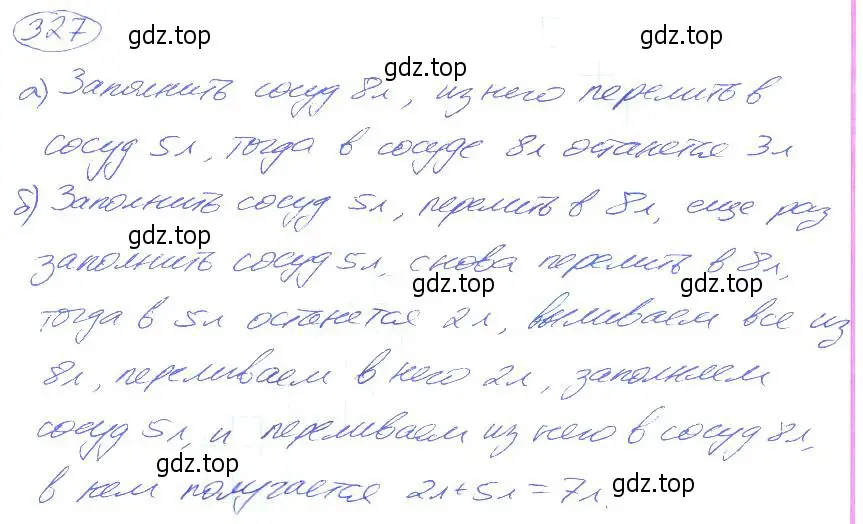 327
gdz.top
gdz.top
gdz.top
а) Заполнить сосуд 8л, из него перелить в
сосуд 5л, тогда в сосуде 8л останется 3л
б) Заполнить сосуд 5л, перелить в 8л, еще раз
gdz.top
заполнить сосуд 5л, снова перелить в 8л,
gdz.top
gdz.top
тогда в 5л останется 2л, выливаем все из
8л, переливаем в него 2л, заполняем
сосуд 5л, и переливаем из него в сосуд 8л,
gdz.top
в нем получается 2л+5л=7л.
gdz.top